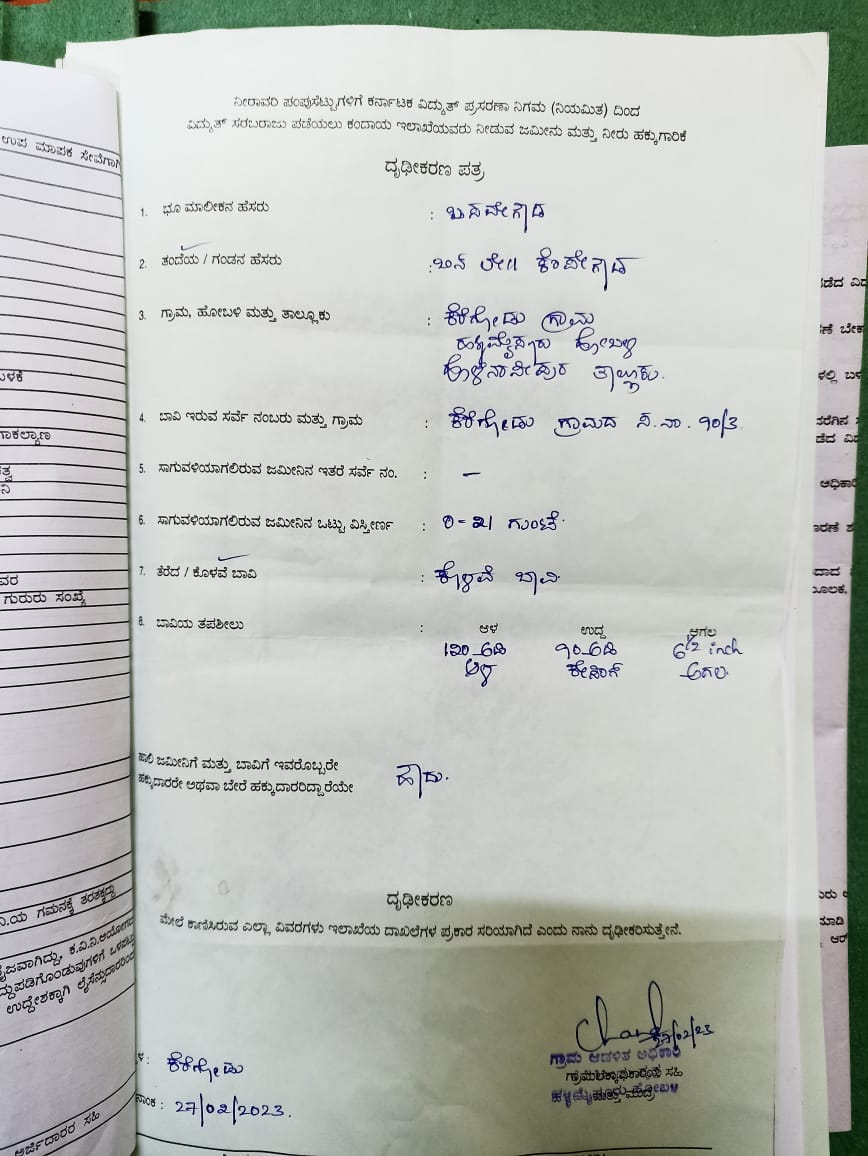 ನೀರಾವರಿ ಪಂಪುಸೆಟ್ಟುಗಳಿಗೆ ಕರ್ನಾಟಕ ವಿದ್ಯುತ್ ಪ್ರಸರಣಾ ನಿಗಮ (ನಿಯಮಿತ) ದಿಂದ
ವಿದ್ಯುತ್ ಸರಬರಾಜು ಪಡೆಯಲು ಕಂದಾಯ ಇಲಾಖೆಯವರು ನೀಡುವ ಜಮೀನು ಮತ್ತು ನೀರು ಹಕ್ಕುಗಾರಿಕೆ
ದೃಢೀಕರಣ ಪತ್ರ
1. ಭೂ ಮಾಲೀಕನ ಹೆಸರು : ಬಸವೇಗೌಡ
2. ತಂದೆಯ / ಗಂಡನ ಹೆಸರು : ಬಿನ್ ಲೇ|| ಕೆಂಪೇಗೌಡ
3. ಗ್ರಾಮ, ಹೋಬಳಿ ಮತ್ತು ತಾಲ್ಲೂಕು : ಕೆರೆಗೋಡು ಗ್ರಾಮ
ಹಳ್ಳಿಮೈಸೂರು ಹೋಬಳಿ
ಹೊಳೆನರಸೀಪುರ ತಾಲ್ಲೂಕು.
4. ಬಾವಿ ಇರುವ ಸರ್ವೆ ನಂಬರು ಮತ್ತು ಗ್ರಾಮ : ಕೆರೆಗೋಡು ಗ್ರಾಮದ ಸ.ನಂ. 90/3
5. ಸಾಗುವಳಿಯಾಗಲಿರುವ ಜಮೀನಿನ ಇತರೆ ಸರ್ವೆ ನಂ. : —
6. ಸಾಗುವಳಿಯಾಗಲಿರುವ ಜಮೀನಿನ ಒಟ್ಟು ವಿಸ್ತೀರ್ಣ : ಗುಂಟೆ
7. ತೆರೆದ / ಕೊಳವೆ ಬಾವಿ : ಕೊಳವೆ ಬಾವಿ
8. ಬಾವಿಯ ತಪಶೀಲು : ಆಳ ಉದ್ದ ಅಗಲ
ಅಡಿ 90 ಅಡಿ 6 1/2 inch
ಆಳ ಕೇಸಿಂಗ್ ಅಗಲ
ಹಾಲಿ ಜಮೀನಿಗೆ ಮತ್ತು ಬಾವಿಗೆ ಇವರೊಬ್ಬರೇ
ಹಕ್ಕುದಾರರೇ ಅಥವಾ ಬೇರೆ ಹಕ್ಕುದಾರರಿದ್ದಾರೆಯೇ ಹೌದು.
ದೃಢೀಕರಣ
ಮೇಲೆ ಕಾಣಿಸಿರುವ ಎಲ್ಲಾ ವಿವರಗಳು ಇಲಾಖೆಯ ದಾಖಲೆಗಳ ಪ್ರಕಾರ ಸರಿಯಾಗಿದೆ ಎಂದು ನಾನು ದೃಢೀಕರಿಸುತ್ತೇನೆ.
ಳ : ಕೆರೆಗೋಡು
ನಾಂಕ : 27/02/2023.
27/02/23
ಗ್ರಾಮ ಆಡಳಿತ ಅಧಿಕಾರಿ
ಹಳ್ಳಿಮೈಸೂರು ಹೋಬಳಿ
ಉಪ ಮಾಪಕ ಸೇವೆಗಾಗಿ
ಗುರುರು ಸಂಖ್ಯೆ
ಯ ಗಮನಕ್ಕೆ ತರತಕ್ಕದ್ದು
ಉದ್ದೇಶಕ್ಕಾಗಿ
ಅರ್ಜಿದಾರರ ಸಹಿ